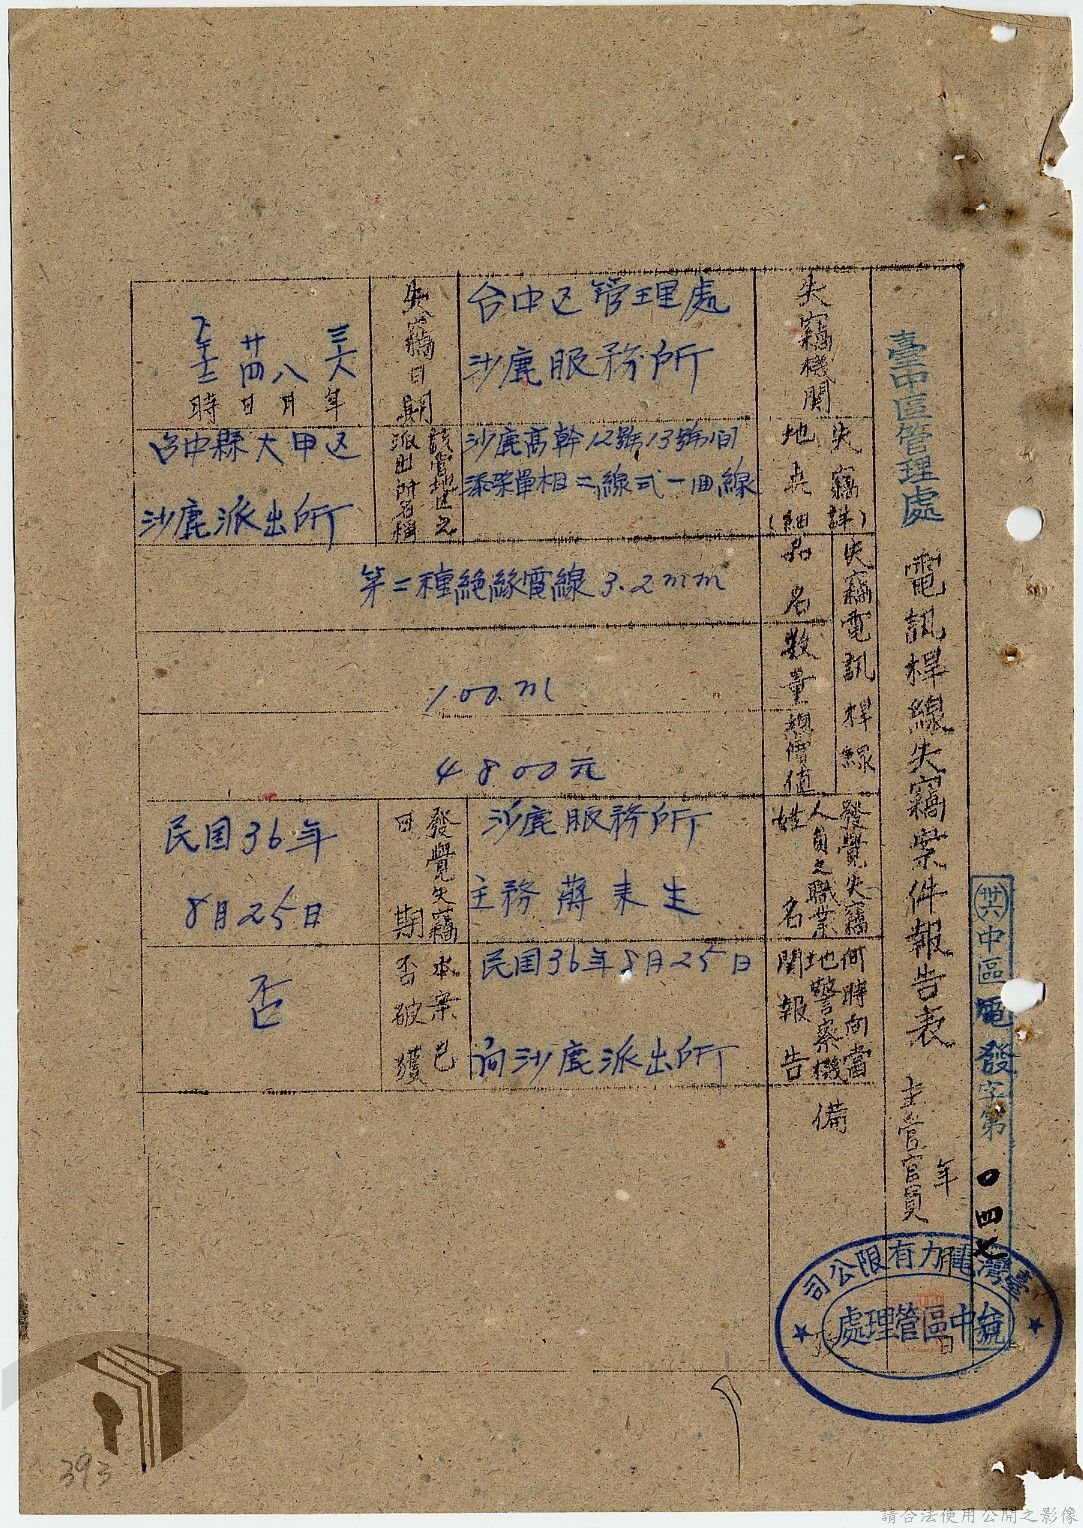 臺中區管理處
電訊桿線失竊案件報告表
主管官員
年
月
日
㊥中區電發字第〇四七號
臺灣電力有限公司
台中區管理處
失竊機關
台中区管理處
沙鹿服務所
失竊日期
三六年
八月
廿四日
下午十二時
失竊地点(詳細)
沙鹿高幹12號13號間
添架單相二線式一回線
該管地区之派出所名稱
台中縣大甲区
沙鹿派出所
失竊電訊桿線
品名
第二種絶緣電線3.2mm
數量
100m
總價值
4800元
發覺失竊人員之職業姓名
沙鹿服務所
主務蔣来生
發覺失竊日期
民国36年
8月25日
何時向當地警察機関報告
民国36年8月25日
向沙鹿派出所
本案已否破獲
否
備
393
請合法使用公開之影像